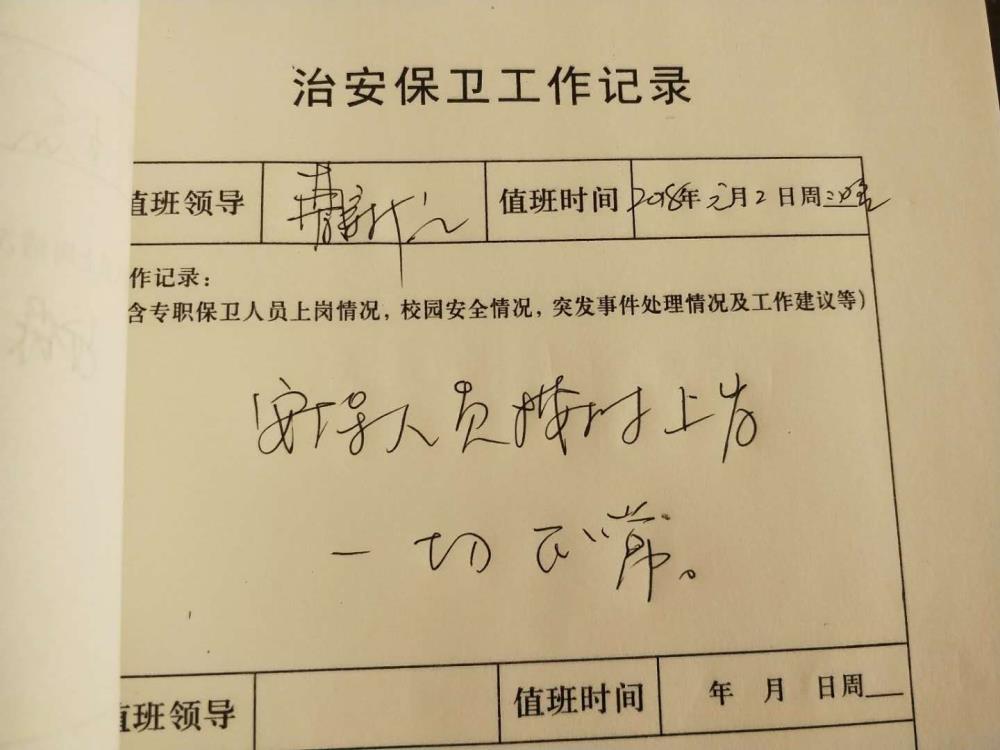 治安保卫工作记录
值班领导 值班时间 2018年元月2日周二
作记录：
含专职保卫人员上岗情况，校园安全情况，突发事件处理情况及工作建议等）
安保人员按时上岗
一切正常。
值班领导 值班时间 年 月 日周